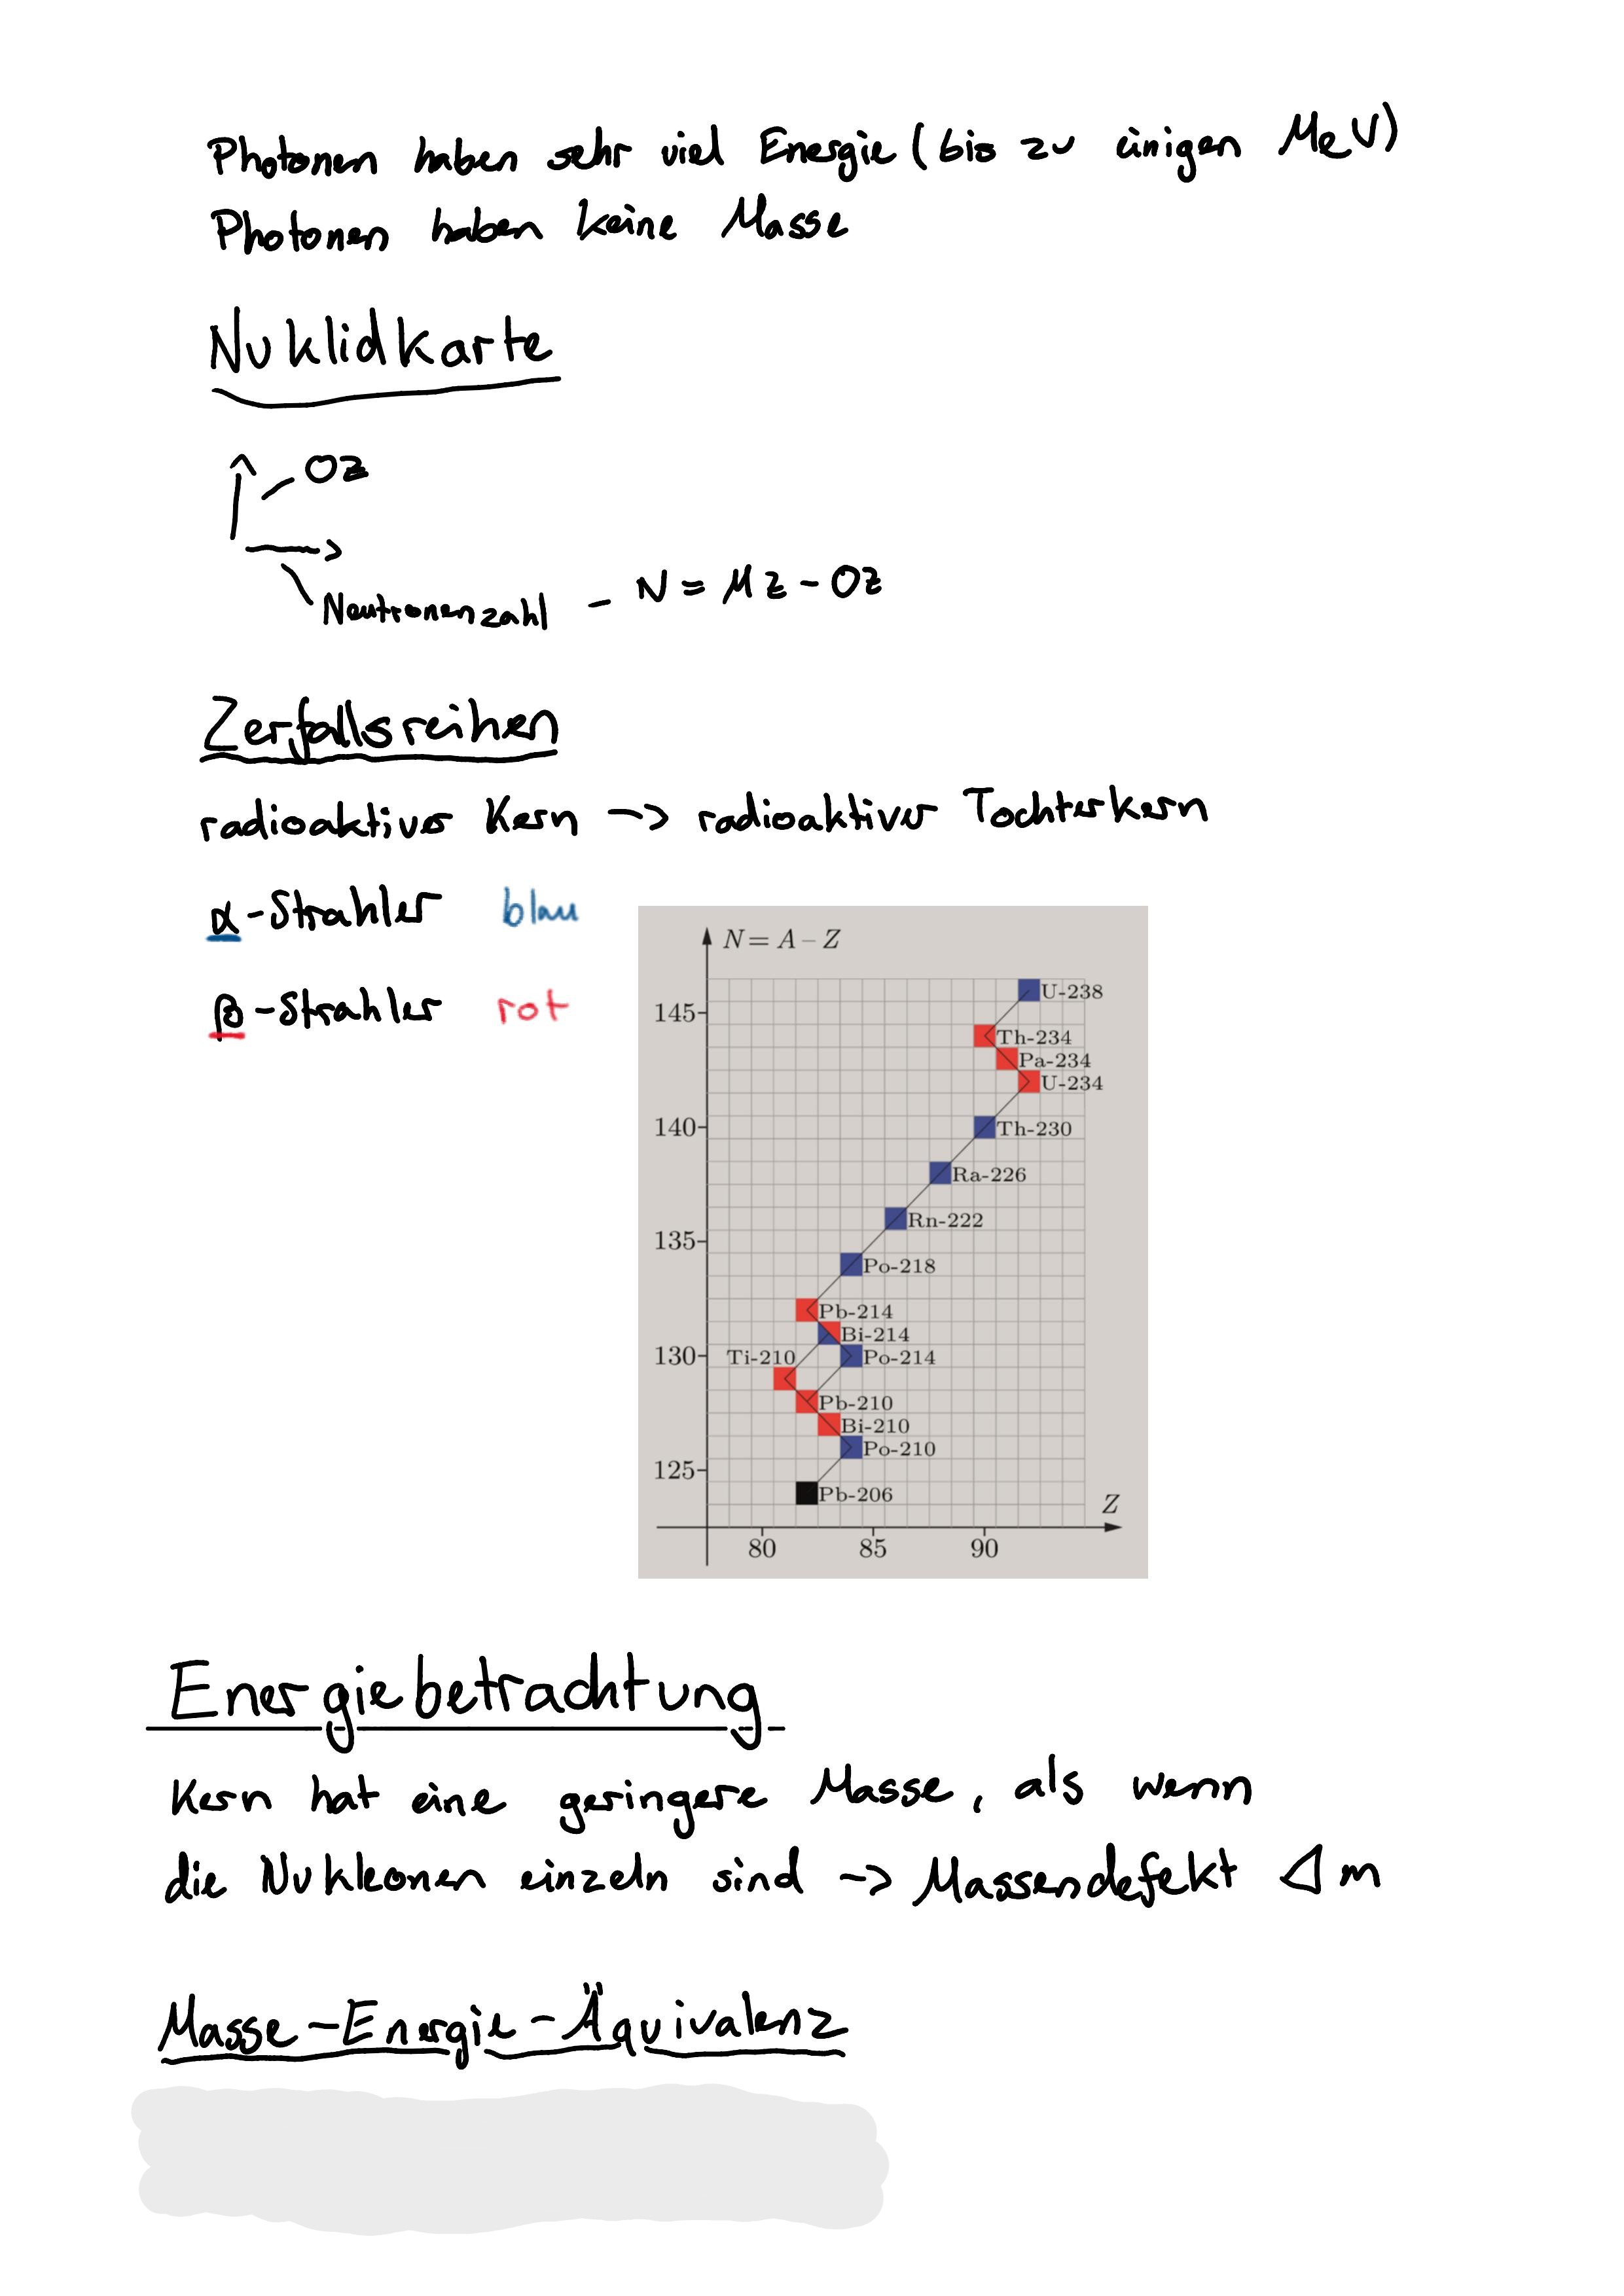 Photonen haben sehr viel Energie (bis zu einigen MeV)
Photonen haben keine Masse
Nuklidkarte
OZ
Neutronenzahl - N = MZ - OZ
Zerfallsreihen
radioaktiver Kern -> radioaktiver Tochterkern
α-Strahler blau
β-Strahler rot
N = A – Z
U-238
145
Th-234
Pa-234
U-234
140
Th-230
Ra-226
Rn-222
135
Po-218
Pb-214
Bi-214
130
Ti-210
Po-214
Pb-210
Bi-210
Po-210
125
Pb-206
Z
80 85 90
Energiebetrachtung
Kern hat eine geringere Masse, als wenn
die Nukleonen einzeln sind -> Massendefekt Δm
Masse-Energie-Äquivalenz